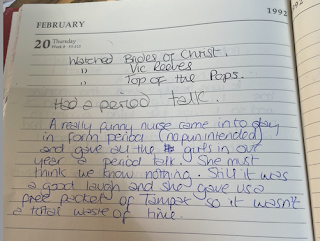 FEBRUARY
1992
20 Thursday
Watched Brides of Christ.
11 Vic Reeves
11 Top of the Pops.
Had a period talk.
A really funny nurse came into day
in form period (no pun intended)
and gave all the girls in our
year a period talk. She must
think we know nothing. Still it was
a good laugh and she gave us a
free packet of Tampax so it wasn't
a total waste of time.